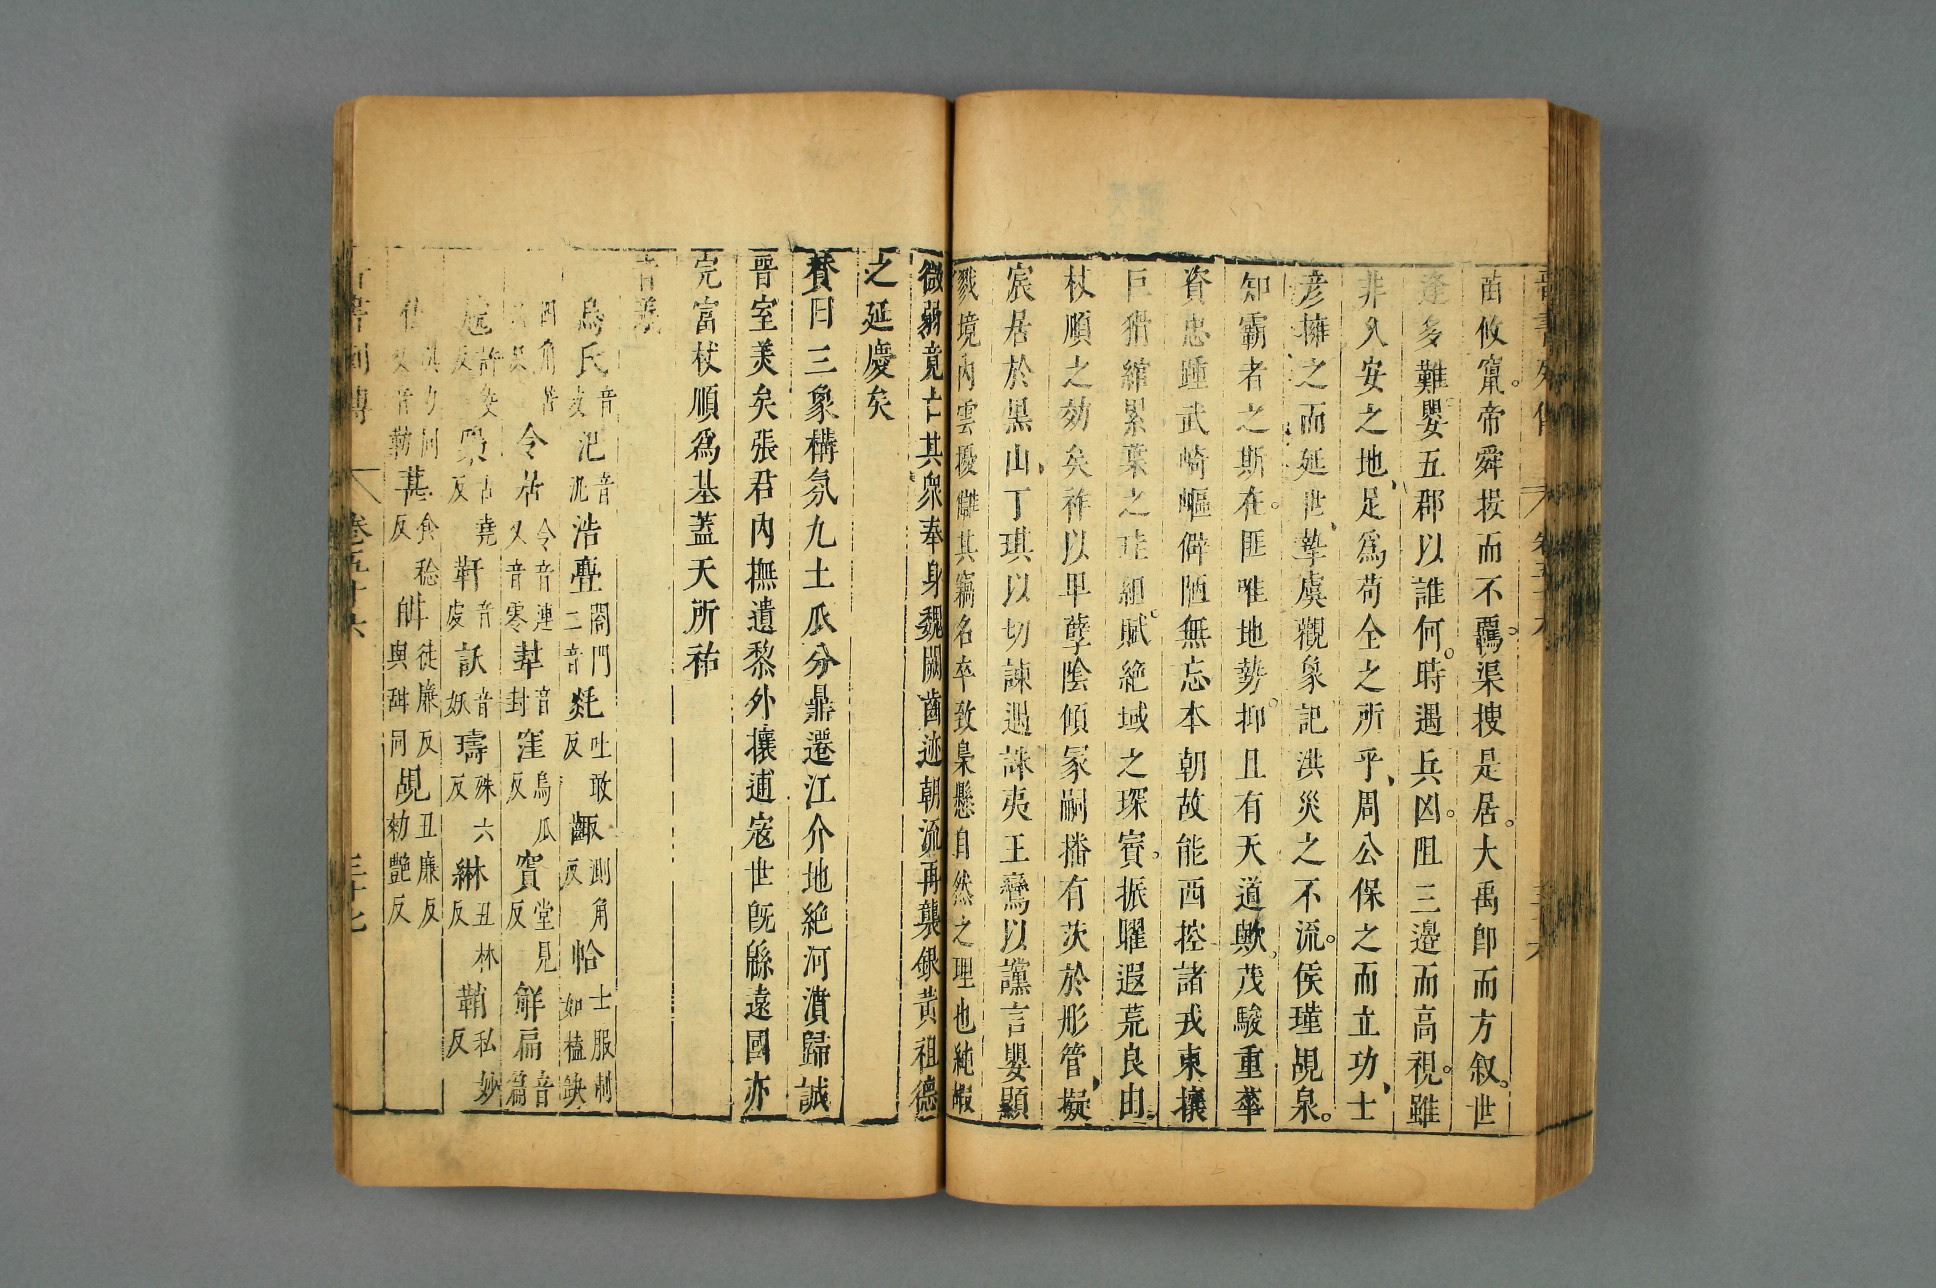 苗攸竄帝舜投而不羈渠搜是居大禹卽而方叙世
逢多難嬰五郡以誰何時遇兵凶阻三邊而高視雖
非久安之地足爲苟全之所乎周公保之而立功士
彦擁之而延世摯虞觀象記洪災之不流侯瑾覘泉
知霸者之斯在匪唯地勢抑且有天道歟茂駿重華
資忠踵武崎嶇僻陋無忘本朝故能西控諸戎東攘
巨猾綰累葉之珪組賦絶域之琛賨振曜遐荒良由
杖順之効矣祚以卑孽陰傾冢嗣播有茨於彤管擬
宸居於黑山丁琪以切諫遇誅夷王鸞以讜言嬰顯
戮境內雲擾讎其竊名卒致梟懸自然之理也純嘏
微弱竟亡其衆奉身魏闕齒迹朝流再襲銀黃祖德
之延慶矣
贊曰三象構氛九土瓜分鼎遷江介地絶河濆歸誠
晉室美矣張君內撫遺黎外攘逋寇世旣緜遠國亦
完富杖順爲基蓋天所祐
音義
烏氏音支 氾音汎 浩亹閤門二音 菼吐敢反 齱測角反 帢士服制如榼缺
四角苦 令居令音連又音寒 犎音封 窪烏瓜反 賓堂見反 鮮扁音篇
許發反 古堯反 靬音虔 訞音妖 璹殊六反 綝丑林反 鞘私妙反
又音勒 葚食稔反 甛徒廉反與甜同 覘丑廉反勑艷反
卷五十六 三十七